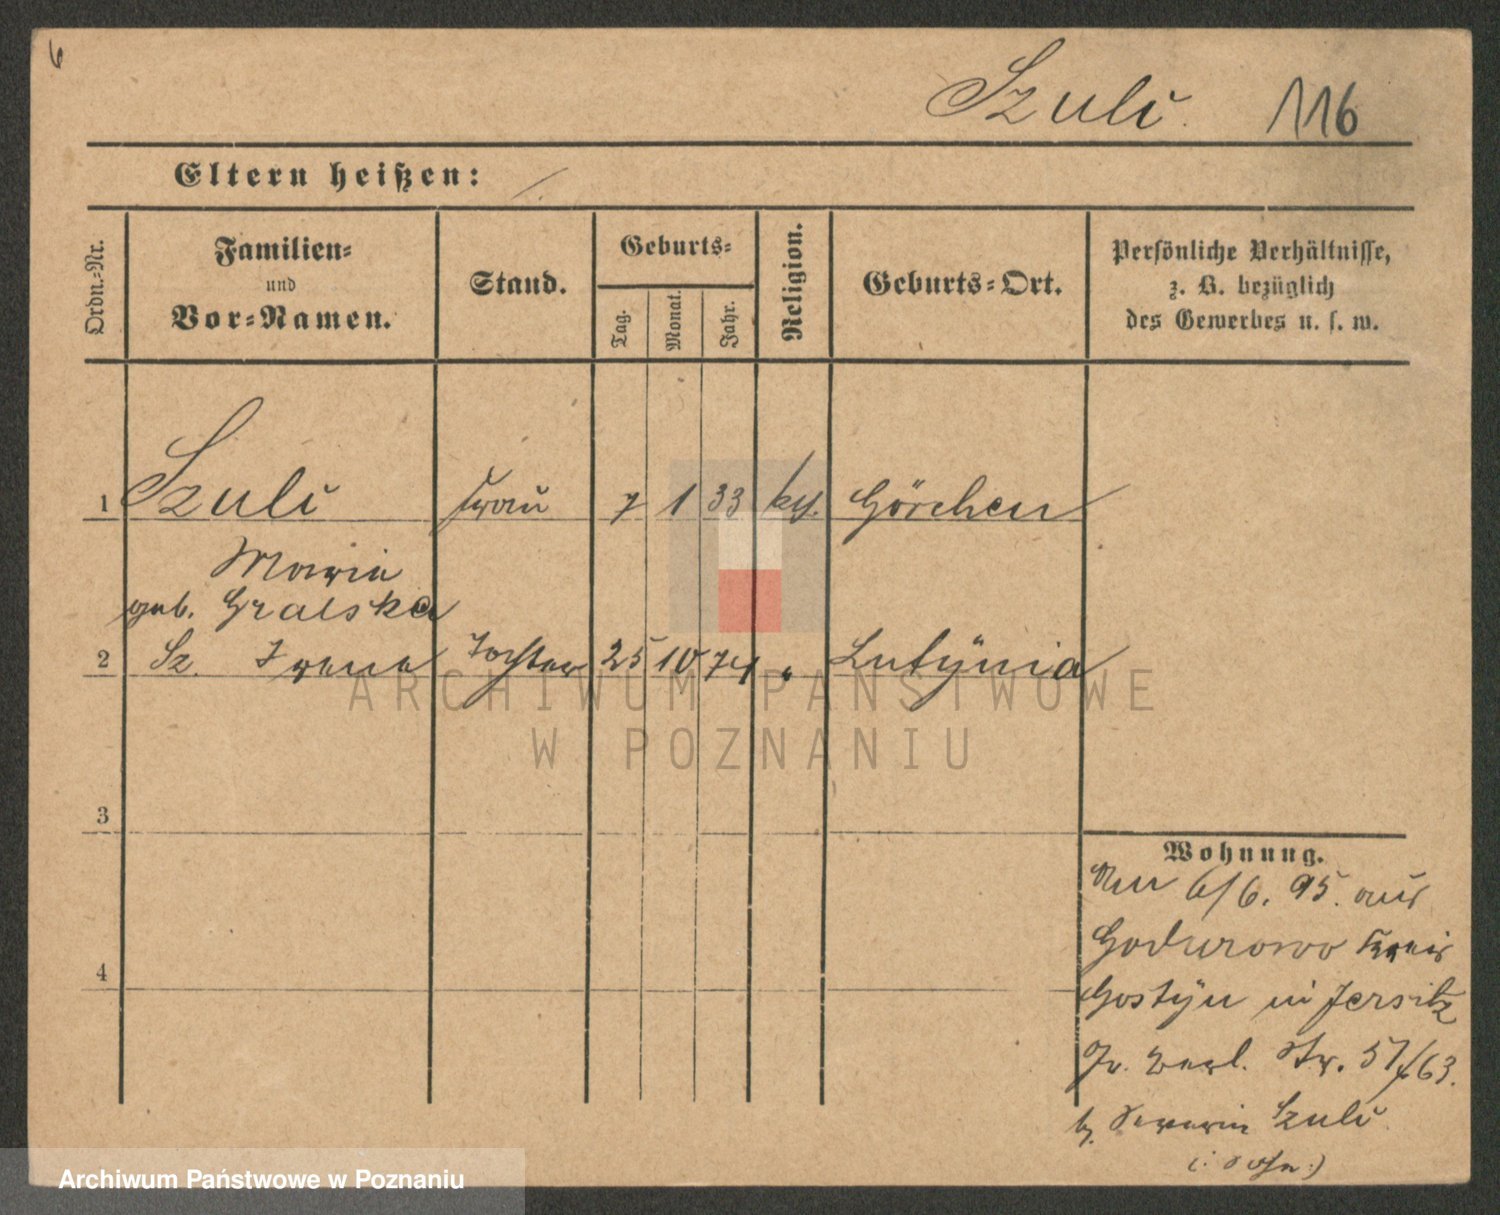 6
Szulc. 116
Eltern heißen: /
Ordn.-Nr.
Familien-
und
Vor-Namen.
Stand.
Geburts-
Tag.
Monat.
Jahr.
Religion.
Geburts-Ort.
Persönliche Verhältnisse,
z. B. bezüglich
des Gewerbes u. s. w.
1 Szulc Frau 7 1 33 kth. Görchen
Marie
geb. Gralska
2 Sz. Irene Tochter 25 10 74 " Lutynia
3
4
Wohnung.
6/6. 95. aus
Godurowo Kreis
Gostyn in Jersitz
Gr. Berl. Str. 57/63.
b. Severin Szulc
(: Sohn :)
ARCHIWUM PAŃSTWOWE
W POZNANIU
Archiwum Państwowe w Poznaniu